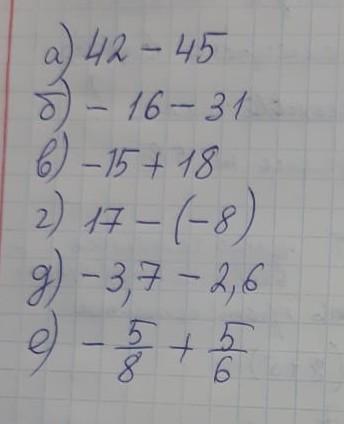 а) 42 - 45
б) - 16 - 31
в) -15 + 18
г) 17 - (-8)
д) -3,7 - 2,6
е) - 5/8 + 5/6